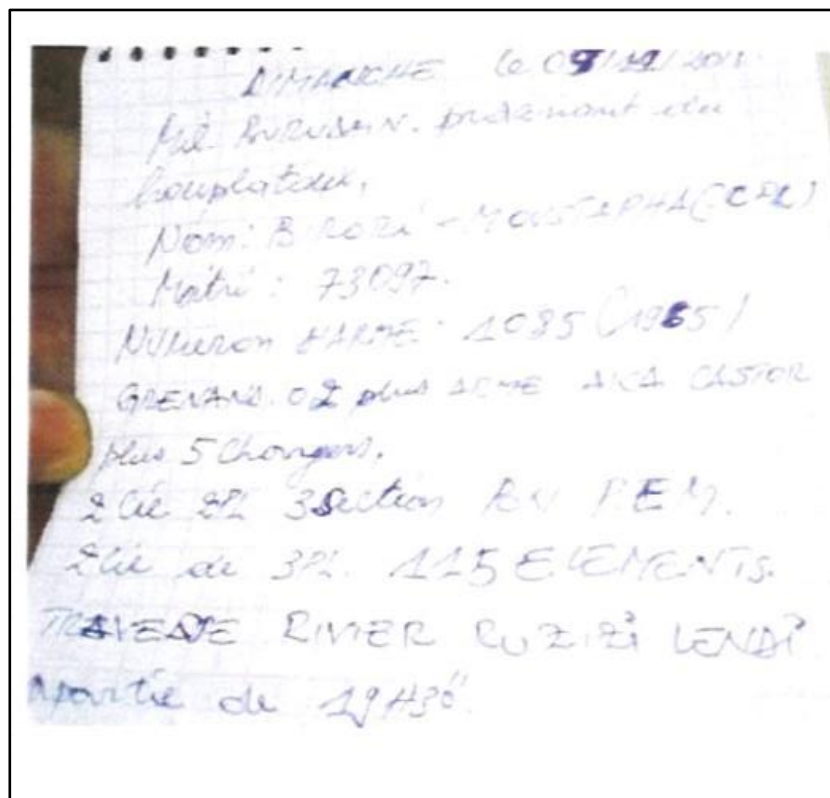 DIMANCHE le 09/11/201
Mil BURUNDI. provenant du
houplateau,
Nom: BIROZI - MOUSTAPHA (CPL)
Matri : 73097.
NUMERON HARME : 1085 (1965)
GRENAND. 02 plus ARME AKA CASTOR
plus 5 Chargers,
2 Cie 2PL 3 Section BN PEM.
2 Cie de 3PL. 115 ELEMENTS.
TRAVERSE RIVIER RUZIZI LUNDI
Apartie de 19H30"